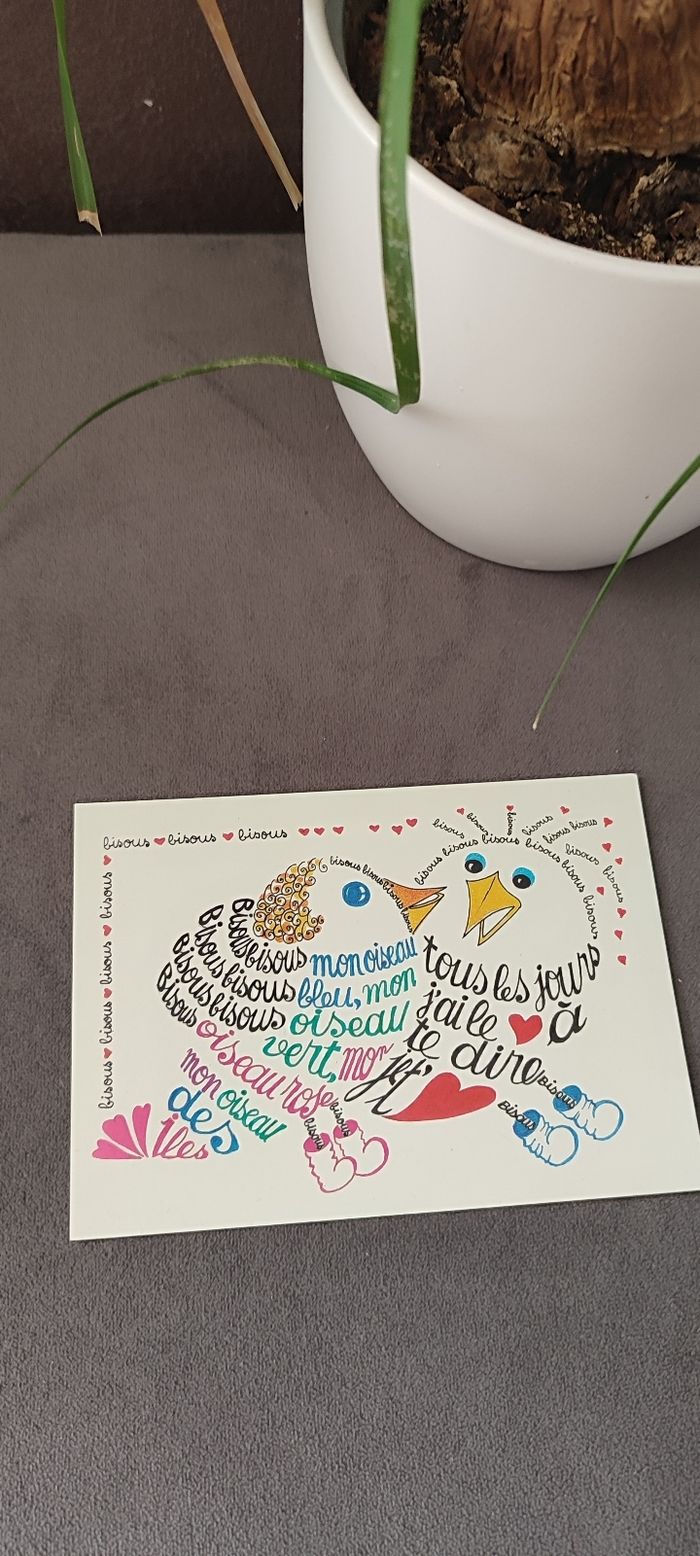 bisous bisous bisous
bisous bisous bisous bisous
bisous bisous bisous
bisous bisous bisous bisous bisous
bisous bisous bisous bisous
bisous bisous
Bisous bisous mon oiseau
Bisous bisous bleu, mon
Bisous bisous oiseau
Bisous oiseau rose
vert, mon
mon oiseau
des
îles
tous les jours
j'ai le à
te dire
je t'
bisous
bisous
Bisous
Bisous